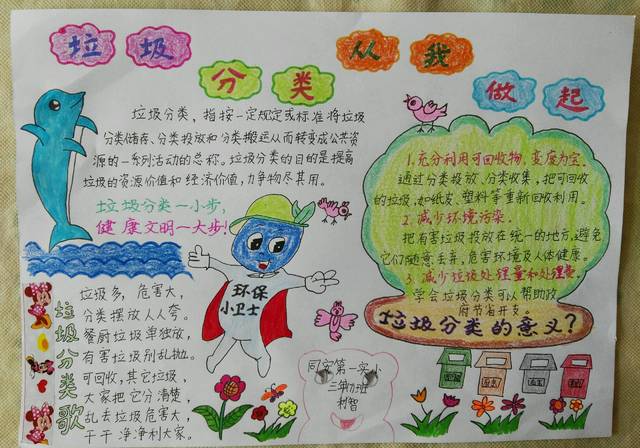 垃圾分类从我做起
垃圾分类，指按一定规定或标准将垃圾
分类储存、分类投放和分类搬运从而转变成公共资
源的一系列活动的总称。垃圾分类的目的是提高
垃圾的资源价值和经济价值，力争物尽其用。
垃圾分类一小步，
健康文明一大步！
1.充分利用可回收物，变废为宝。
通过分类投放、分类收集，把可回收
的垃圾，如纸皮、塑料等重新回收利用。
2.减少环境污染。
把有害垃圾投放在统一的地方，避免
它们随意丢弃，危害环境及人体健康。
3.减少垃圾处理量和处理费。
学会垃圾分类可以帮助政
府节省开支。
垃圾分类的意义？
环保
小卫士
垃圾分类歌
垃圾多，危害大，
分类摆放人人夸。
餐厨垃圾单独放，
有害垃圾别乱抛。
可回收，其它垃圾，
大家把它分清楚，
乱去垃圾危害大，
干干净净利大家。
同安第一实小